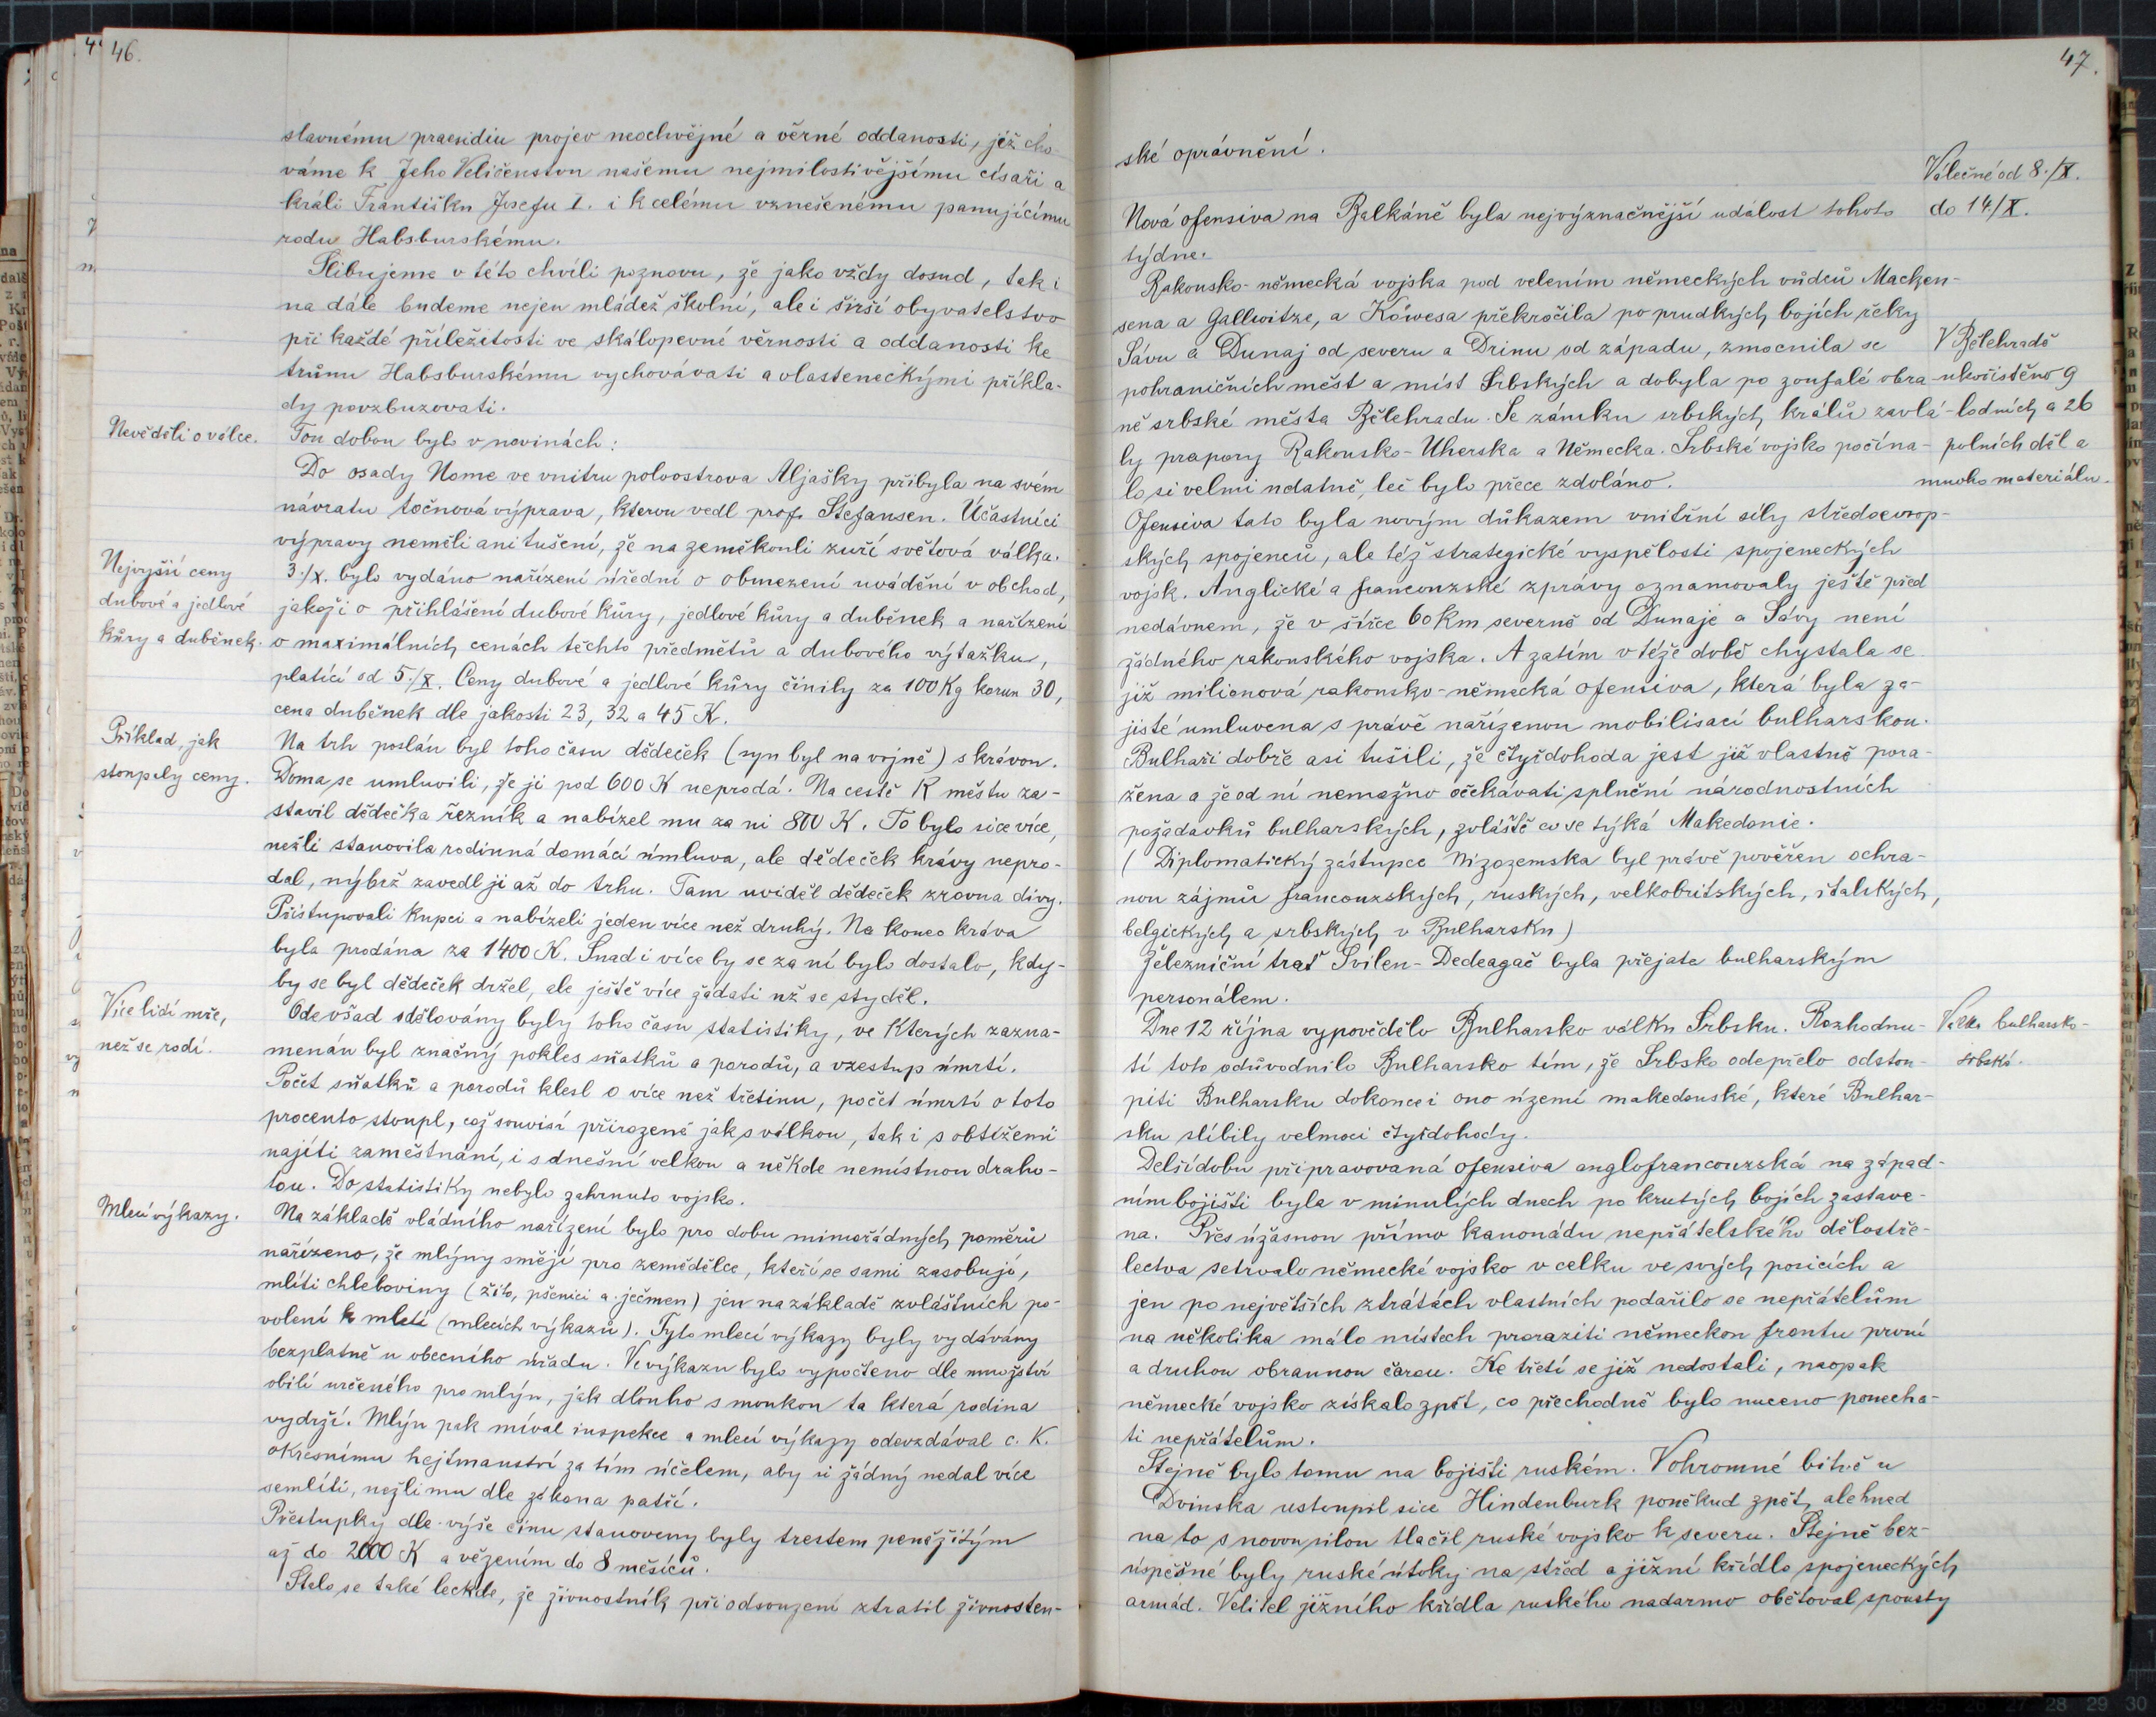 46.
slavnému praesidiu projev neochvějné a věrné oddanosti, jež cho-
váme k Jeho Veličenstvu našemu nejmilostivějšímu císaři a
králi Františku Josefu I. i k celému vznešenému panujícímu
rodu Habsburskému.
Slibujeme v této chvíli poznovu, že jako vždy dosud, tak i
na dále budeme nejen mládež školní, ale i širší obyvatelstvo
při každé příležitosti ve skálopevné věrnosti a oddanosti ke
trůnu Habsburskému vychovávati a vlasteneckými příkla-
dy povzbuzovati.
Nevěděli o válce.
Tou dobou bylo v novinách:
Do osady Nome ve vnitru poloostrova Aljašky přibyla na svém
návratu točnová výprava, kterou vedl prof. Stefansen. Účastníci
výpravy neměli ani tušení, že na zeměkouli zuří světová válka.
Nejvyšší ceny
dubové a jedlové
kůry a duběnek.
3./X. bylo vydáno nařízení úřední o obmezení uvádění v obchod,
jakož i o přihlášení dubové kůry, jedlové kůry a duběnek a nařízení
o maximálních cenách těchto předmětů a dubového výtažku,
platící od 5./X. Ceny dubové a jedlové kůry činily za 100 Kg korun 30,
cena duběnek dle jakosti 23, 32 a 45 K.
Příklad, jak
stoupaly ceny.
Na trh poslán byl toho času dědeček (syn byl na vojně) s krávou.
Doma se umluvili, že ji pod 600 K neprodá. Na cestě k městu za-
stavil dědečka řezník a nabízel mu za ni 800 K. To bylo sice více,
nežli stanovila rodinná domácí úmluva, ale dědeček krávy nepro-
dal, nýbrž zavedl ji až do trhu. Tam uviděl dědeček zrovna divy.
Přistupovali kupci a nabízeli jeden více než druhý. Na konec kráva
byla prodána za 1400 K. Snad i více by se za ní bylo dostalo, kdy-
by se byl dědeček držel, ale ještě více žádati už se styděl.
Více lidí mře,
než se rodí.
Ode všad sdělovány byly toho času statistiky, ve kterých zazna-
menán byl značný pokles sňatků a porodů, a vzestup úmrtí.
Počet sňatků a porodů klesl o více než třetinu, počet úmrtí o toto
procento stoupl, což souvisí přirozeně jak s válkou, tak i s obtížemi
najíti zaměstnání, i s dnešní velkou a někde nemístnou draho-
tou. Do statistiky nebylo zahrnuto vojsko.
Mlecí výkazy.
Na základě vládního nařízení bylo pro dobu mimořádných poměrů
nařízeno, že mlýny smějí pro zemědělce, kteří se sami zasobují,
mlíti chleboviny (žito, pšenici a ječmen) jen na základě zvláštních po-
volení k mletí (mlecích výkazů). Tyto mlecí výkazy byly vydávány
bezplatně u obecního úřadu. Ve výkazu bylo vypočteno dle množství
obilí určeného pro mlýn, jak dlouho s moukou ta která rodina
vydrží. Mlýn pak míval inspekce a mlecí výkazy odevzdával c. K.
okresnímu hejtmanství za tím účelem, aby si žádný nedal více
semlíti, nežli mu dle zákona patří.
Přestupky dle výše činu stanoveny byly trestem peněžitým
až do 2000 K a vězením do 8 měsíců.
Stalo se také leckde, že živnostník při odsouzení ztratil živnosten-
47.
ské oprávnění.
Válečné od 8./X.
do 14/X.
Nová ofensiva na Balkáně byla nejvýznačnější událost tohoto
týdne.
Rakousko-německá vojska pod velením německých vůdců Macken-
sena a Gallwitze, a Köwesa překročila po prudkých bojích řeky
Sávu a Dunaj od severu a Drinu od západu, zmocnila se
pohraničních měst a míst Srbských a dobyla po zoufalé obra-
ně srbské města Bělehradu. Se zámku srbských králů zavlá-
ly prapory Rakousko-Uherska a Německa. Srbské vojsko počína-
lo si velmi udatně, leč bylo přece zdoláno.
V Bělehradě
ukořistěno 9
lodních a 26
polních děl a
mnoho materiálu.
Ofensiva tato byla novým důkazem vnitřní síly středoevrop-
ských spojenců, ale též strategické vyspělosti spojeneckých
vojsk. Anglické a francouzské zprávy oznamovaly ještě před
nedávnem, že v šířce 60 km severně od Dunaje a Sávy není
žádného rakouského vojska. A zatím v téže době chystala se
již milionová rakousko-německá ofensiva, která byla za-
jisté umluvena s právě nařízenou mobilisací bulharskou.
Bulhaři dobře asi tušili, že čtyřdohoda jest již vlastně pora-
žena a že od ní nemožno očekávati splnění národnostních
požadavků bulharských, zvláště co se týká Makedonie.
( Diplomatický zástupce Nizozemska byl právě pověřen ochra-
nou zájmů francouzských, ruských, velkobritských, italských,
belgických a srbských v Bulharsku)
Železniční trať Svilen-Dedeagač byla přejata bulharským
personálem.
Válka bulharsko-
srbská.
Dne 12 října vypovědělo Bulharsko válku Srbsku. Rozhodnu-
tí toto odůvodnilo Bulharsko tím, že Srbsko odepřelo odstou-
piti Bulharsku dokonce i ono území makedonské, které Bulhar-
sku slíbily velmoci čtyřdohody.
Delší dobu připravovaná ofensiva anglofrancouzská na západ-
ním bojišti byla v minulých dnech po krutých bojích zastave-
na. Přes úžasnou přímo kanonádu nepřátelského dělostře-
lectva setrvalo německé vojsko v celku ve svých posicích a
jen po největších ztrátách vlastních podařilo se nepřátelům
na několika málo místech proraziti německou frontu první
a druhou obrannou čárou. Ke třetí se již nedostali, naopak
německé vojsko získalo zpět, co přechodně bylo nuceno ponecha-
ti nepřátelům.
Stejně bylo tomu na bojišti ruském. V ohromné bitvě u
Dvinska ustoupil sice Hindenburk poněkud zpět, ale hned
na to s novou silou tlačil ruské vojsko k severu. Stejně bez-
úspěšné byly ruské útoky na střed a jižní křídlo spojeneckých
armád. Velitel jižního křídla ruského nadarmo obětoval spousty